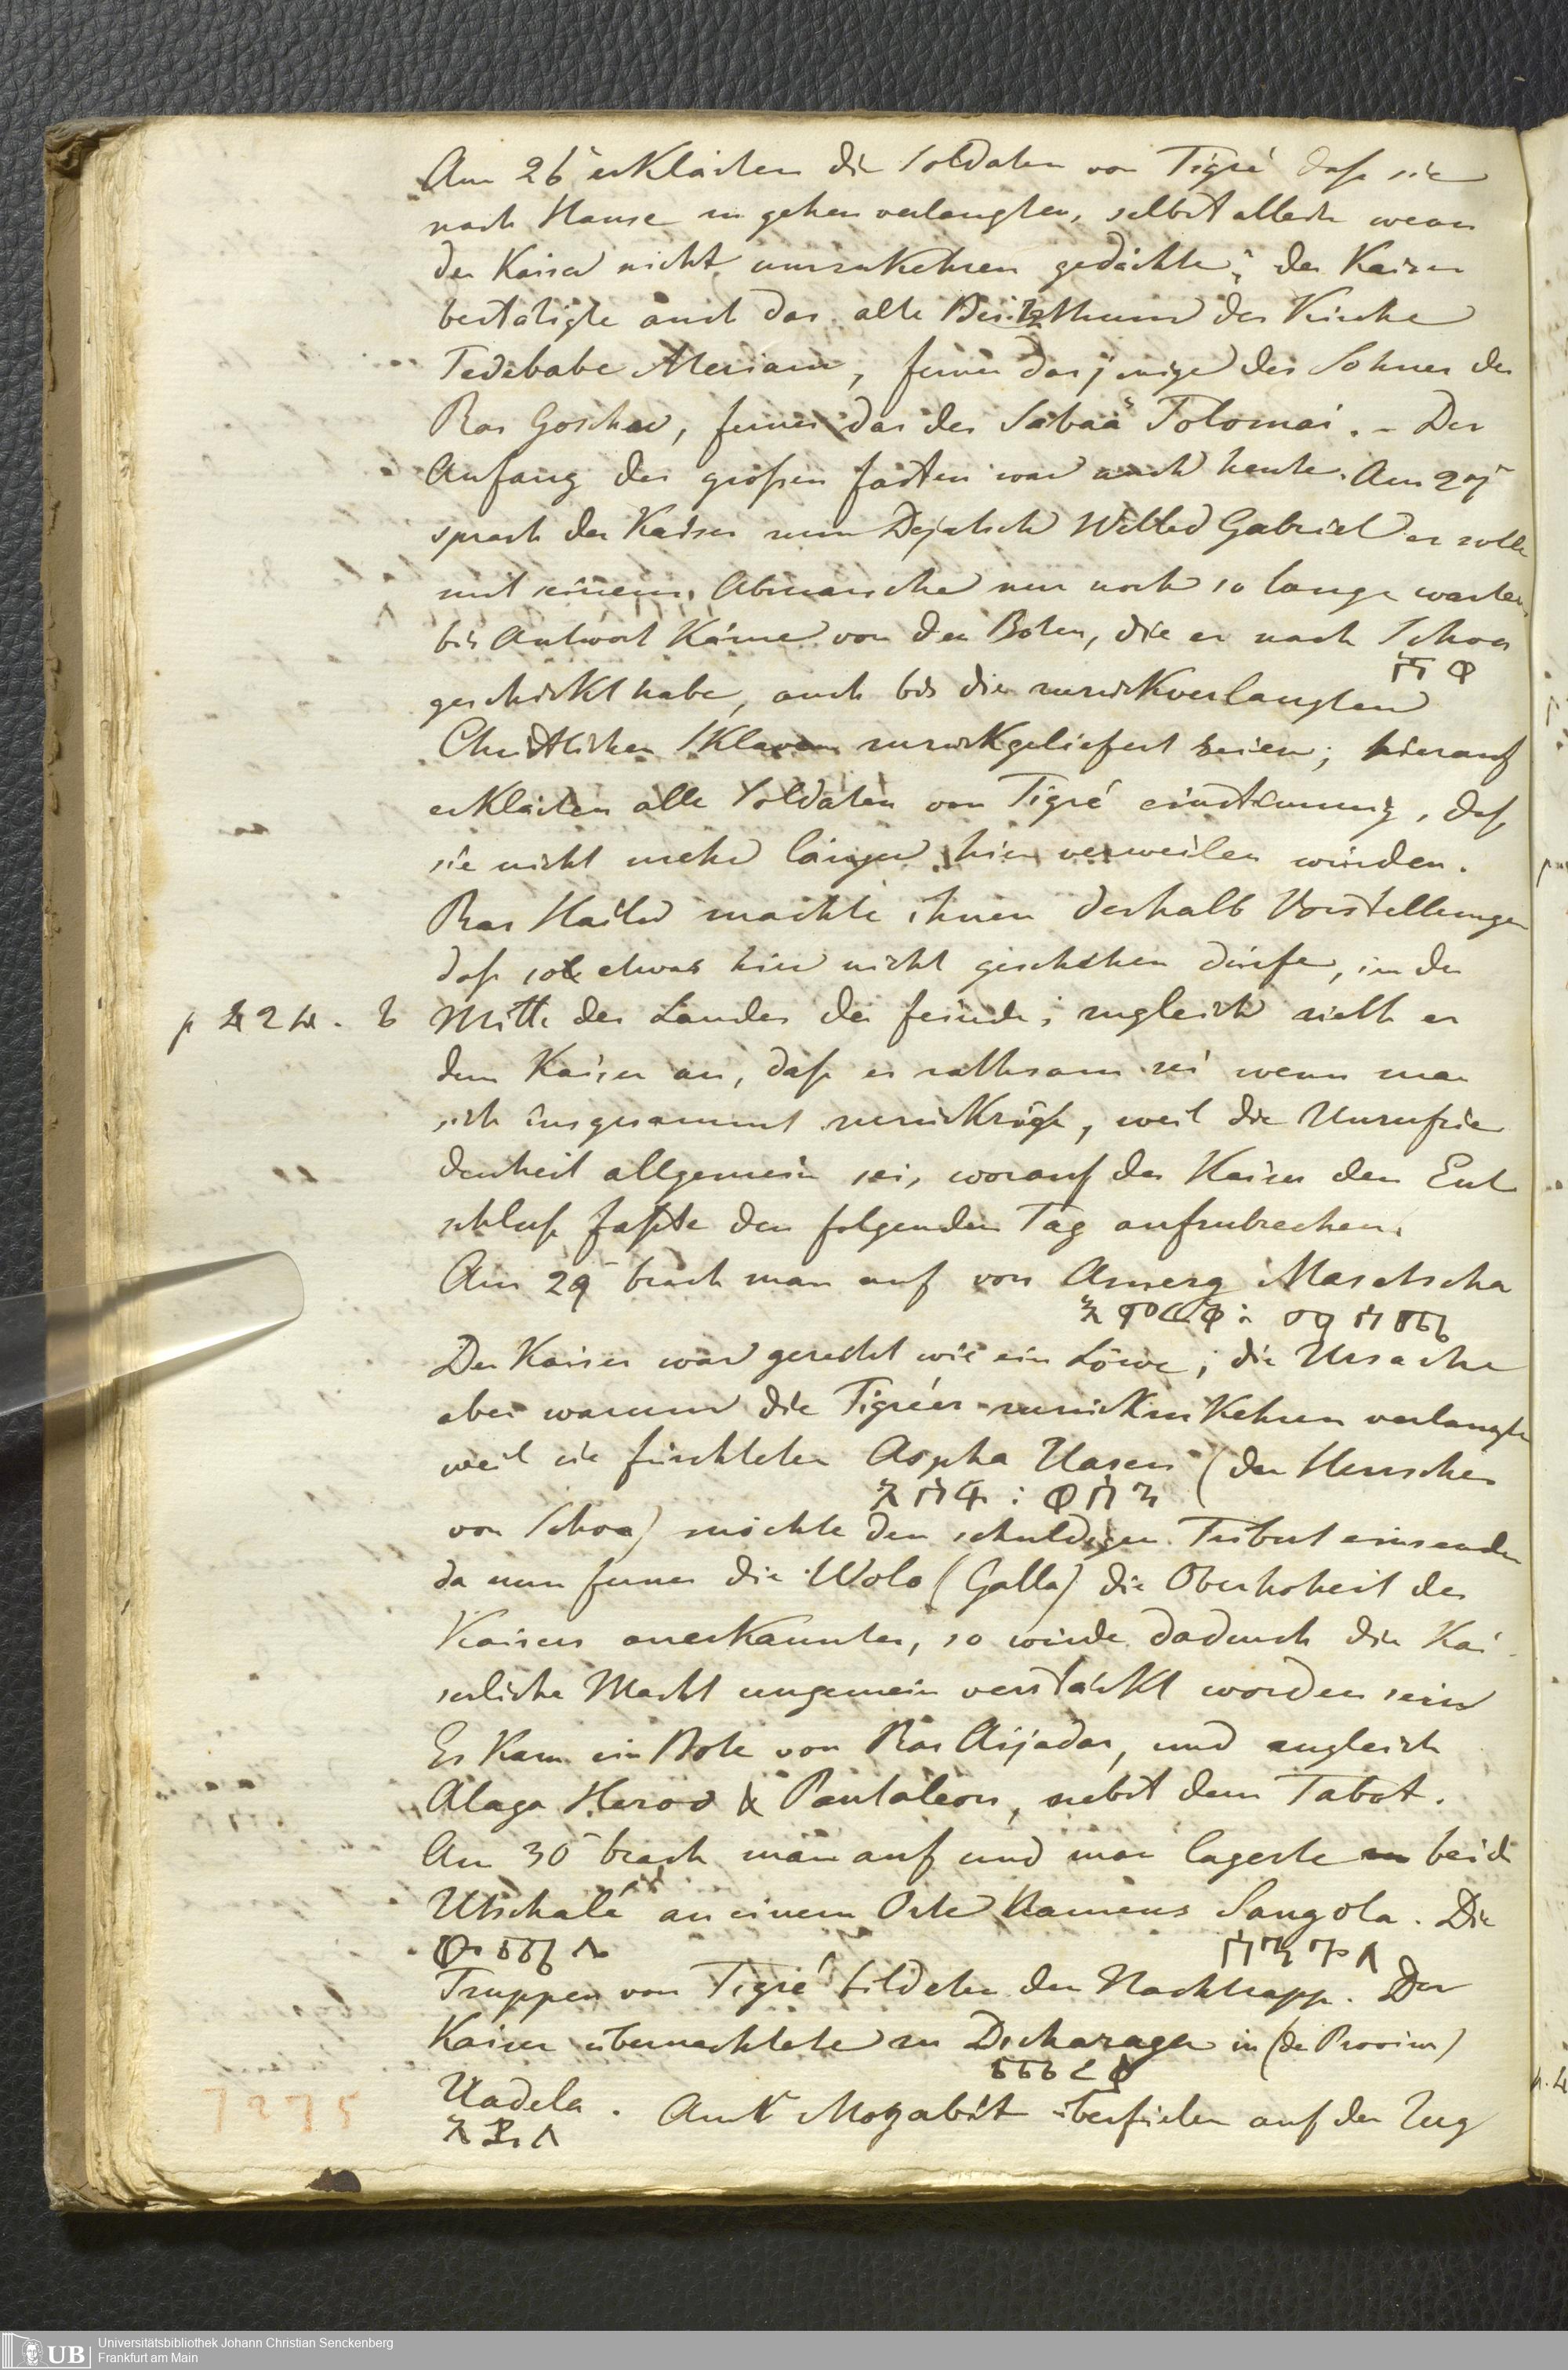 Am 26t erklärten die Soldaten von Tigré daß sie
nach Hause zu gehen verlangten, selbst allein wenn
der Kaiser nicht umzukehren gedächte; der Kaiser
bestätigte auch das alte Besitzthum der Kirche
Tedebabe Meriam, ferner dasjenige des Sohnes des
Ras Goschav, ferner das des Sabaa Tolomai. – Der
Anfang der großen fasten war auch heute. Am 27t
sprach der Kaiser zum Dejatsch Welled Gabriel er solle
mit seinem Abmarsche nur noch so lange warten,
bis Antwort käme von den Boten, die er nach Schoa
ሸዋ
geschickt habe, auch bis die zurückverlangten
Christlichen Sklaven zurückgeliefert seien; hierauf
erklärten alle Soldaten von Tigré einstimmig, daß
sie nicht mehr länger hier verweilen würden.
Ras Hailu machte ihnen deshalb Vorstellungen
daß so etwas hier nicht geschehen dürfe, in der
p 424. b Mitte des Landes der feinde; zugleich rieth er
dem Kaiser an, daß es rathsam sei wenn man
sich insgesammt zurückzöge, weil die Unzufrie
denheit allgemein sei, worauf der Kaiser den Ent
schluß faßte den folgenden Tag aufzubrechen.
Am 29t brach man auf von Amerg Maschscha
Der Kaiser war gerecht wie ein Löwe; die Ursache
aber warum die Tigréer zurückzukehren verlangten
weil sie fürchteten Aspha Uasen (der Herrscher
አስፋ : ዋሰን
von Schoa) möchte den schuldigen Tribut einsenden
da nun ferner die Wolo (Galla) die Oberhoheit des
Kaisers anerkannten, so würde dadurch die Kai
serliche Macht ungemein verstärkt worden sein
Es kam ein Bote von Ras Aijadar, und zugleich
Alaga Herod & Pantaleon, nebst dem Tabot.
Am 30t brach man auf und man lagerte beide
Utschalé an einem Orte Namens Sangola. Die
ውጫሌ ሳንጎላ
Truppen von Tigré bildeten den Nachtrapp. Der
Kaiser übernachtete zu Dscharaga in (der Provinz)
Uadela. Am 1t Mozabit überfielen auf der Zug
7275
Universitätsbibliothek Johann Christian Senckenberg
Frankfurt am Main
UB